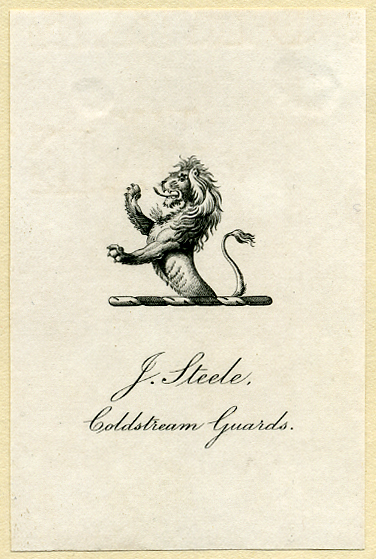 J. Steele.
Coldstream Guards.